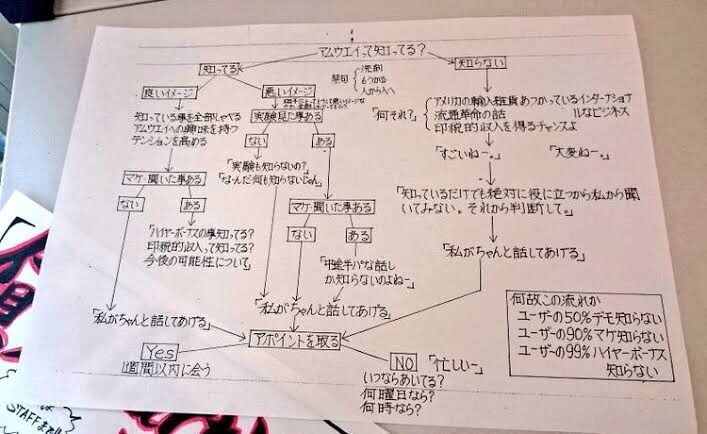 アムウエイって知ってる?
知ってる
知らない
禁句
洗剤
もうかる
人から人へ
良いイメージ
悪いイメージ
知っている事を全部しゃべる
アムウエイへの興味を持つ
テンションを高める
実験見た事ある
ない
ある
「実験も知らないの?
「な〜んだ何も知らないじゃん」
マケ・聞いた事ある
ない
ある
「ハイヤーボーナスの事知ってる?
印税的収入って知ってる?
今後の可能性について」
マケ・聞いた事ある
ない
ある
「中途半パな話し
か知らないのよねー」
「何それ?」
アメリカの輸入雑貨あつかっているインターナショナ
ルなビジネス
流通革命の話
印税的収入を得るチャンスよ
「すごいねー。」
「大変ねー。」
「知っているだけでも絶対に役に立つから私から聞
いてみない。それから判断して。」
「私がちゃんと話してあげる」
「私がちゃんと話してあげる」
「私がちゃんと話してあげる」
アポイントを取る
Yes
1週間以内に会う
NO
「忙しい〜」
いつならあいてる?
何曜日なら?
何時なら?
何故この流れか
ユーザーの50%デモ知らない
ユーザーの90%マケ知らない
ユーザーの99%ハイヤーボーナス
知らない
STAFFまで!!